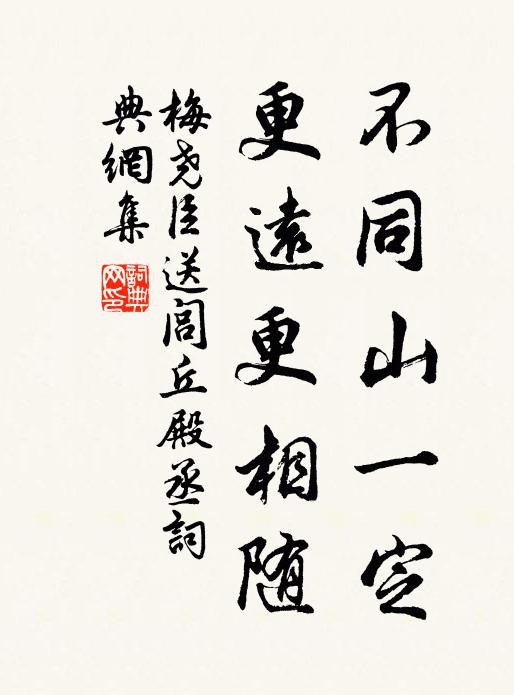 不同山一定
更遠更相随
梅尧臣送閭丘殿丞詞
典網集
詞典网印